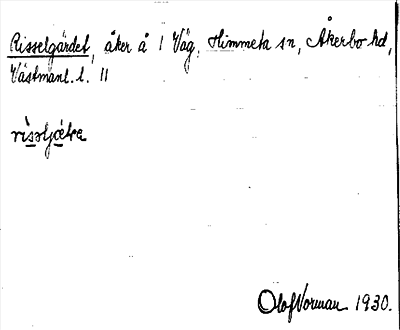 Risselgärdet, åker å 1 Väg, Himmeta sn, Åkerbo hd,
Västmanl. l. 11
Olof Vorman 1930.